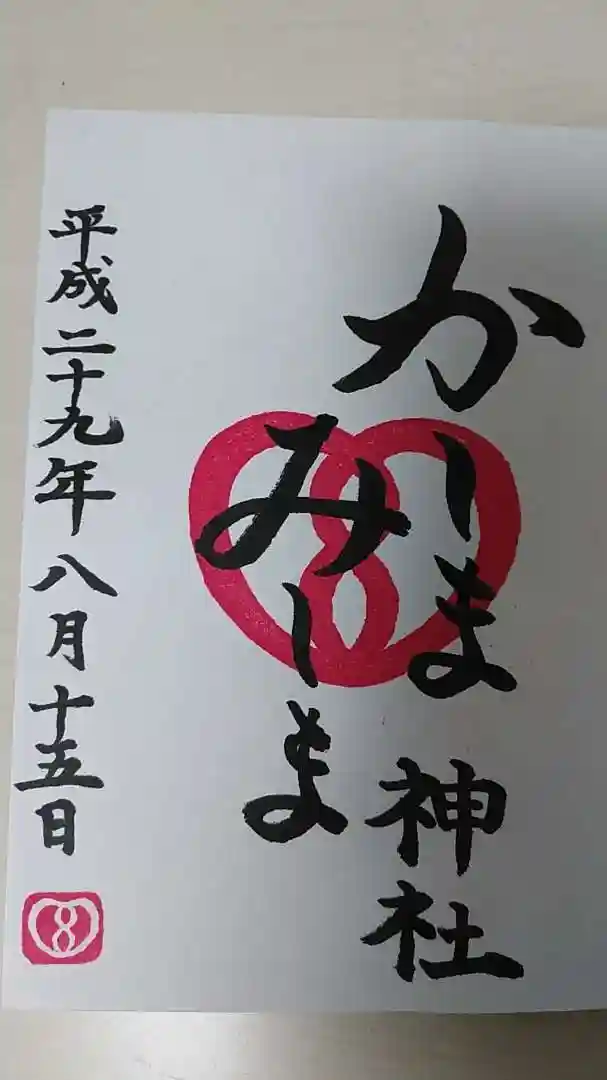 かーま神社
みーま
平成二十九年八月十五日